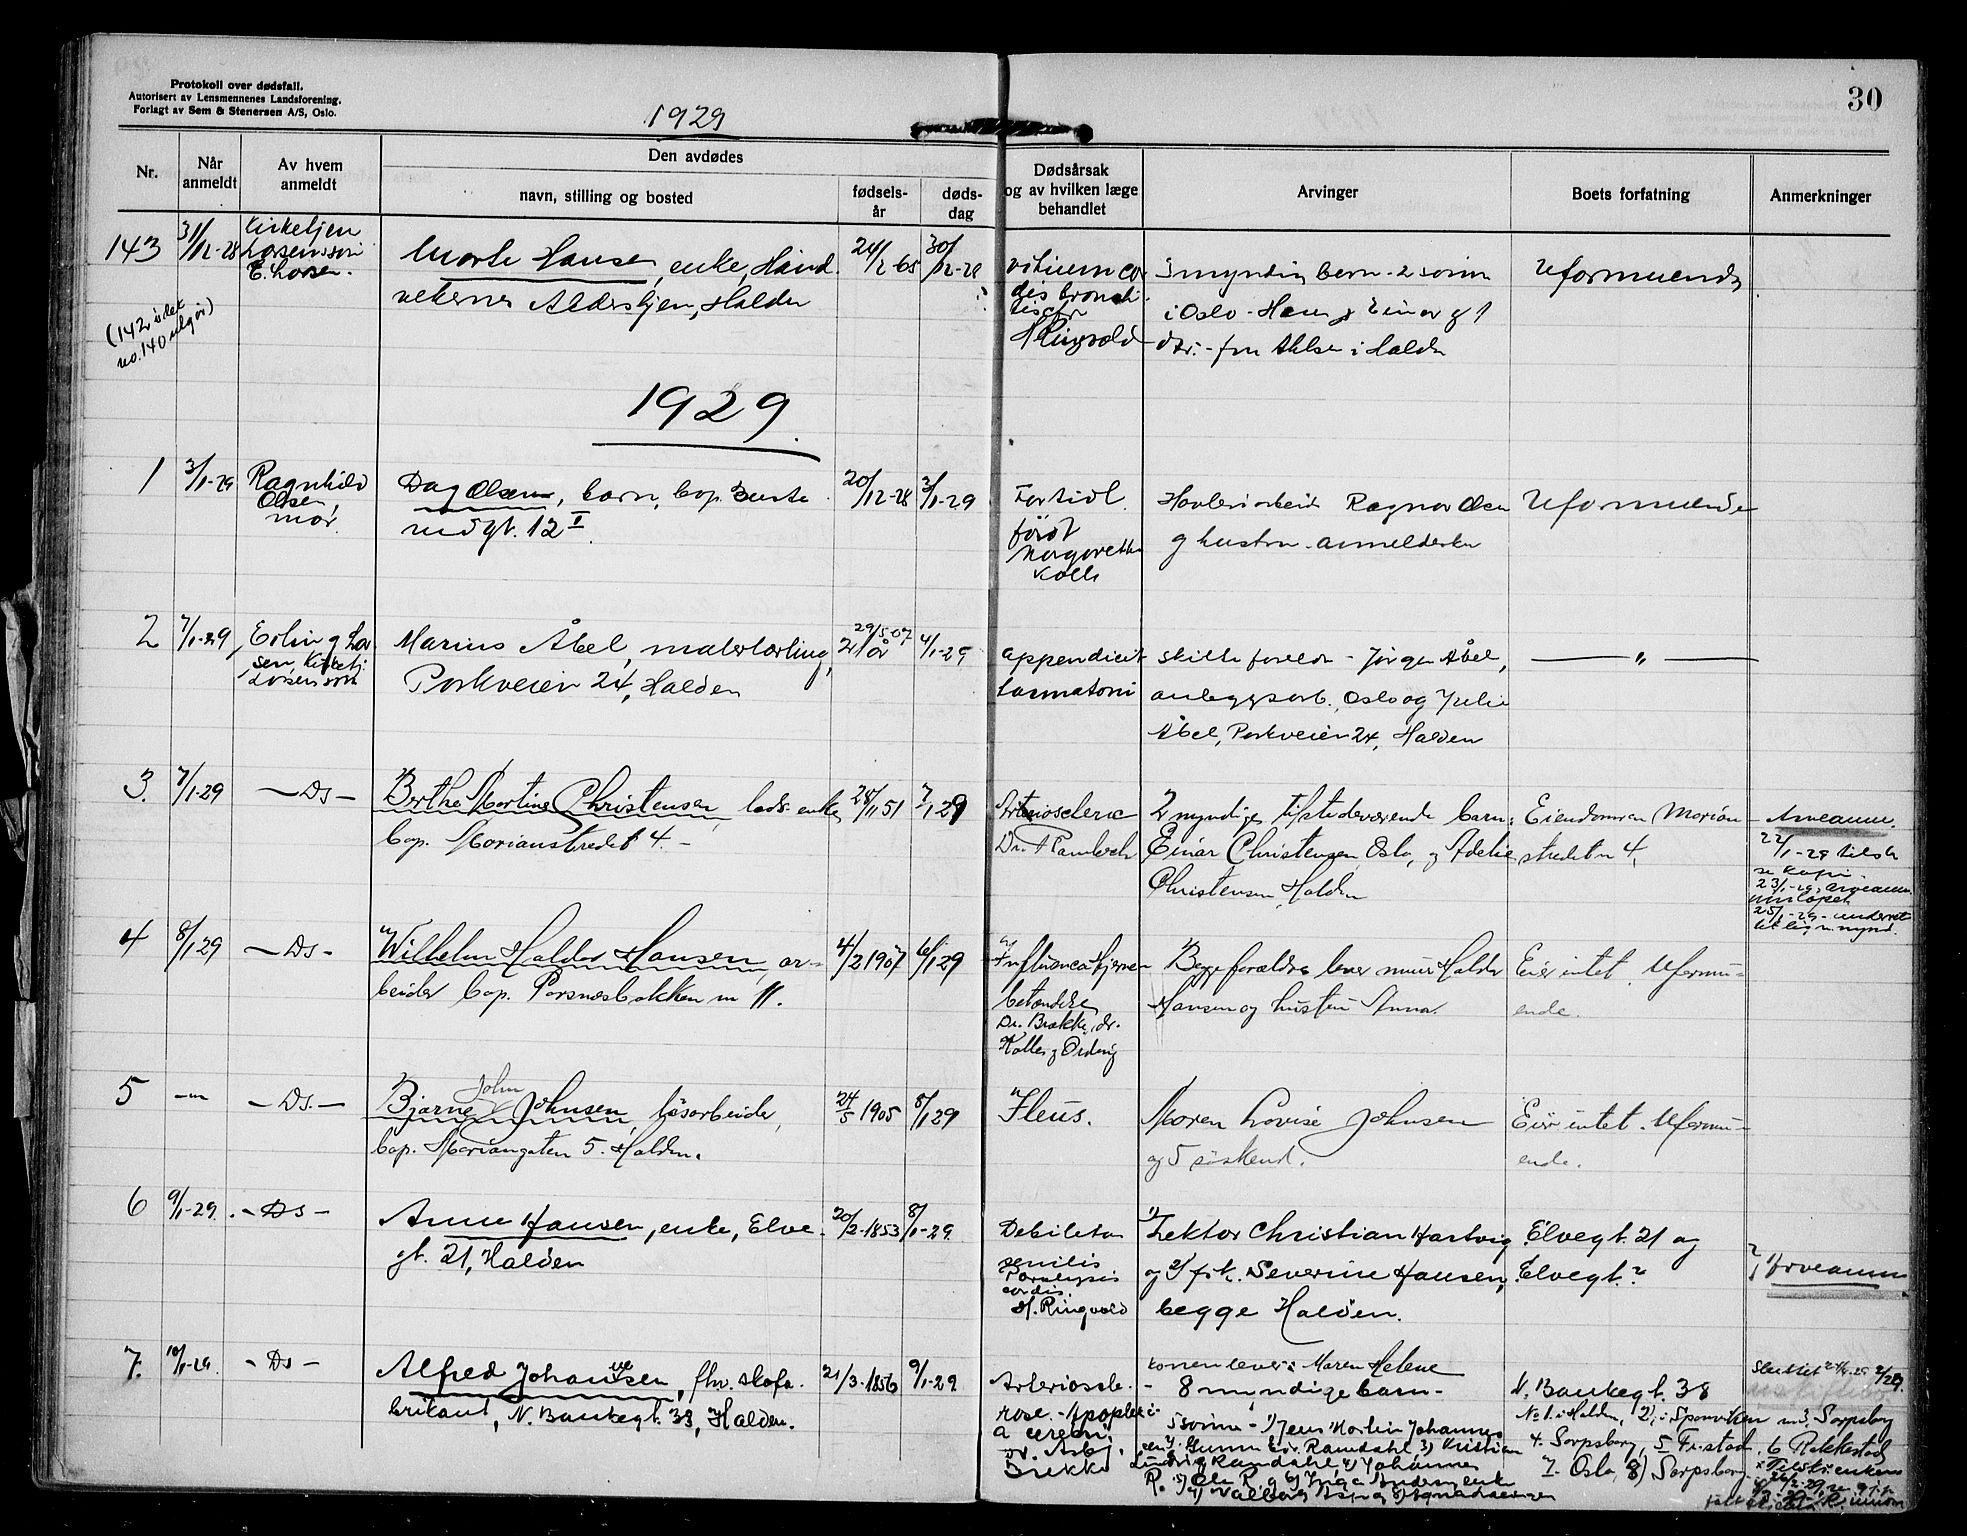 Protokoll over dødsfall.
Autorisert av Lensmennenes Landsforening.
Forlagt av Sem & Stenersen A/S, Oslo.
1929
30
Nr.
Når anmeldt
Av hvem anmeldt
Den avdødes
navn, stilling og bosted
fødselsår
dødsdag
Dødsårsak og av hvilken læge behandlet
Arvinger
Boets forfatning
Anmerkninger
143
31/12-28
E. Larsen.
Marte Hansen, enke, Hånd
verkernes Aldershjem, Halden
24/2-65
30/12-28
vitium cor
dis
H Ringvold
3 myndig barn - 2 sønner
i Oslo - Hans og Einar og 1
dtr. - fru i Halden
Uformuende
(142 i det
no. 140 utgår)
1929.
1
3/1-29
Ragnhild
Olsen,
mor.
Dag Olsen, barn, bop.
12 I.
20/12-28
3/1-29
For tidl.
født
Margarethe
Kolls
Ragnar Olsen
og hustru - anmeldersken
Uformuende
2
7/1-29
Erling Lar
sen, Kirketj.
Larsens sønn
Marius Åbel, malerlærling,
Parkveien 24, Halden
29/5-07
21 år
4/1-29
appendicit
skilte foreldre - Jørgen Åbel,
anleggsarb., Oslo og Julie
Åbel, Parkveien 24, Halden
— " —
3.
7/1-29
— Ds —
Berthe Martine Christensen, enke
bop. Marianstredet 4. -
28/11 51
7/1 29
Arteriosclerose
2 myndige, tilstedeværende barn:
Einar Christensen, Oslo, og Adelie
Christensen, Halden
Eiendommen Marian-
stredet n 4,
Arveanm.
22/1-29
se kopi.
23/1-29, arveanm
25/1-29 - underret
4
8/1 29
— Ds —
Wilhelm Halvor Hansen, ar-
beider bop. Porsnesbakken nr 11.
4/2 1907
6/1 29
Influenca Hjerne
betændelse
Dr. Brække, dr.
Kolls og Ording
Begge forældre lever murer Halvor
Hansen og hustru Anna.
Eier intet. Uformu-
ende.
5
— " —
— Ds. —
Bjarne John Johnsen, løsarbeider,
bop. Mariangaten 5. Halden.
24/5 1905
8/1 29
Ileus.
Moren Lovise Johnsen
og 5 søskend.
Eier intet. Uformu-
ende.
6
9/1-29.
— Ds —
Anne Hansen, enke, Elve
gt. 21, Halden
20/2-1853
8/1-29.
Debilitas
senilis
Paralysis
cordis.
H. Ringvold
1) Lektor Christian Hartvig
og 2) frk. Severine Hansen,
begge Halden.
Elvegt. 21 og
Elvegt. ?
Arveanm
7.
10/1-29
— Ds —
Alfred Johannesen, fhv. skofa-
brikant, N. Bankegt. 38, Halden.
21/3-1856
9/1-29
Arterioscle-
rose. - Apoplexi-
a cerebri
dr. Asbj.
Brekke
Konen lever: Maren Helene
- 8 myndige barn -
5 sønner - 1) Jens Martin Johannes
sen 2) Gunnar Edv. Ramdahl 3) Kristian
Ludvig Ramdahl 4) Johannes
R. 5) Ole R. og 6) Inga Andersen, enke
7) Valborg
N. Bankegt. 38
No 1. i Halden, 2) i Sponviken nr 3, Sarpsborg
4. Sarpsborg, 5 Fr.stad, 6 Rakkestad
7. Oslo, 8) Sarpsborg.